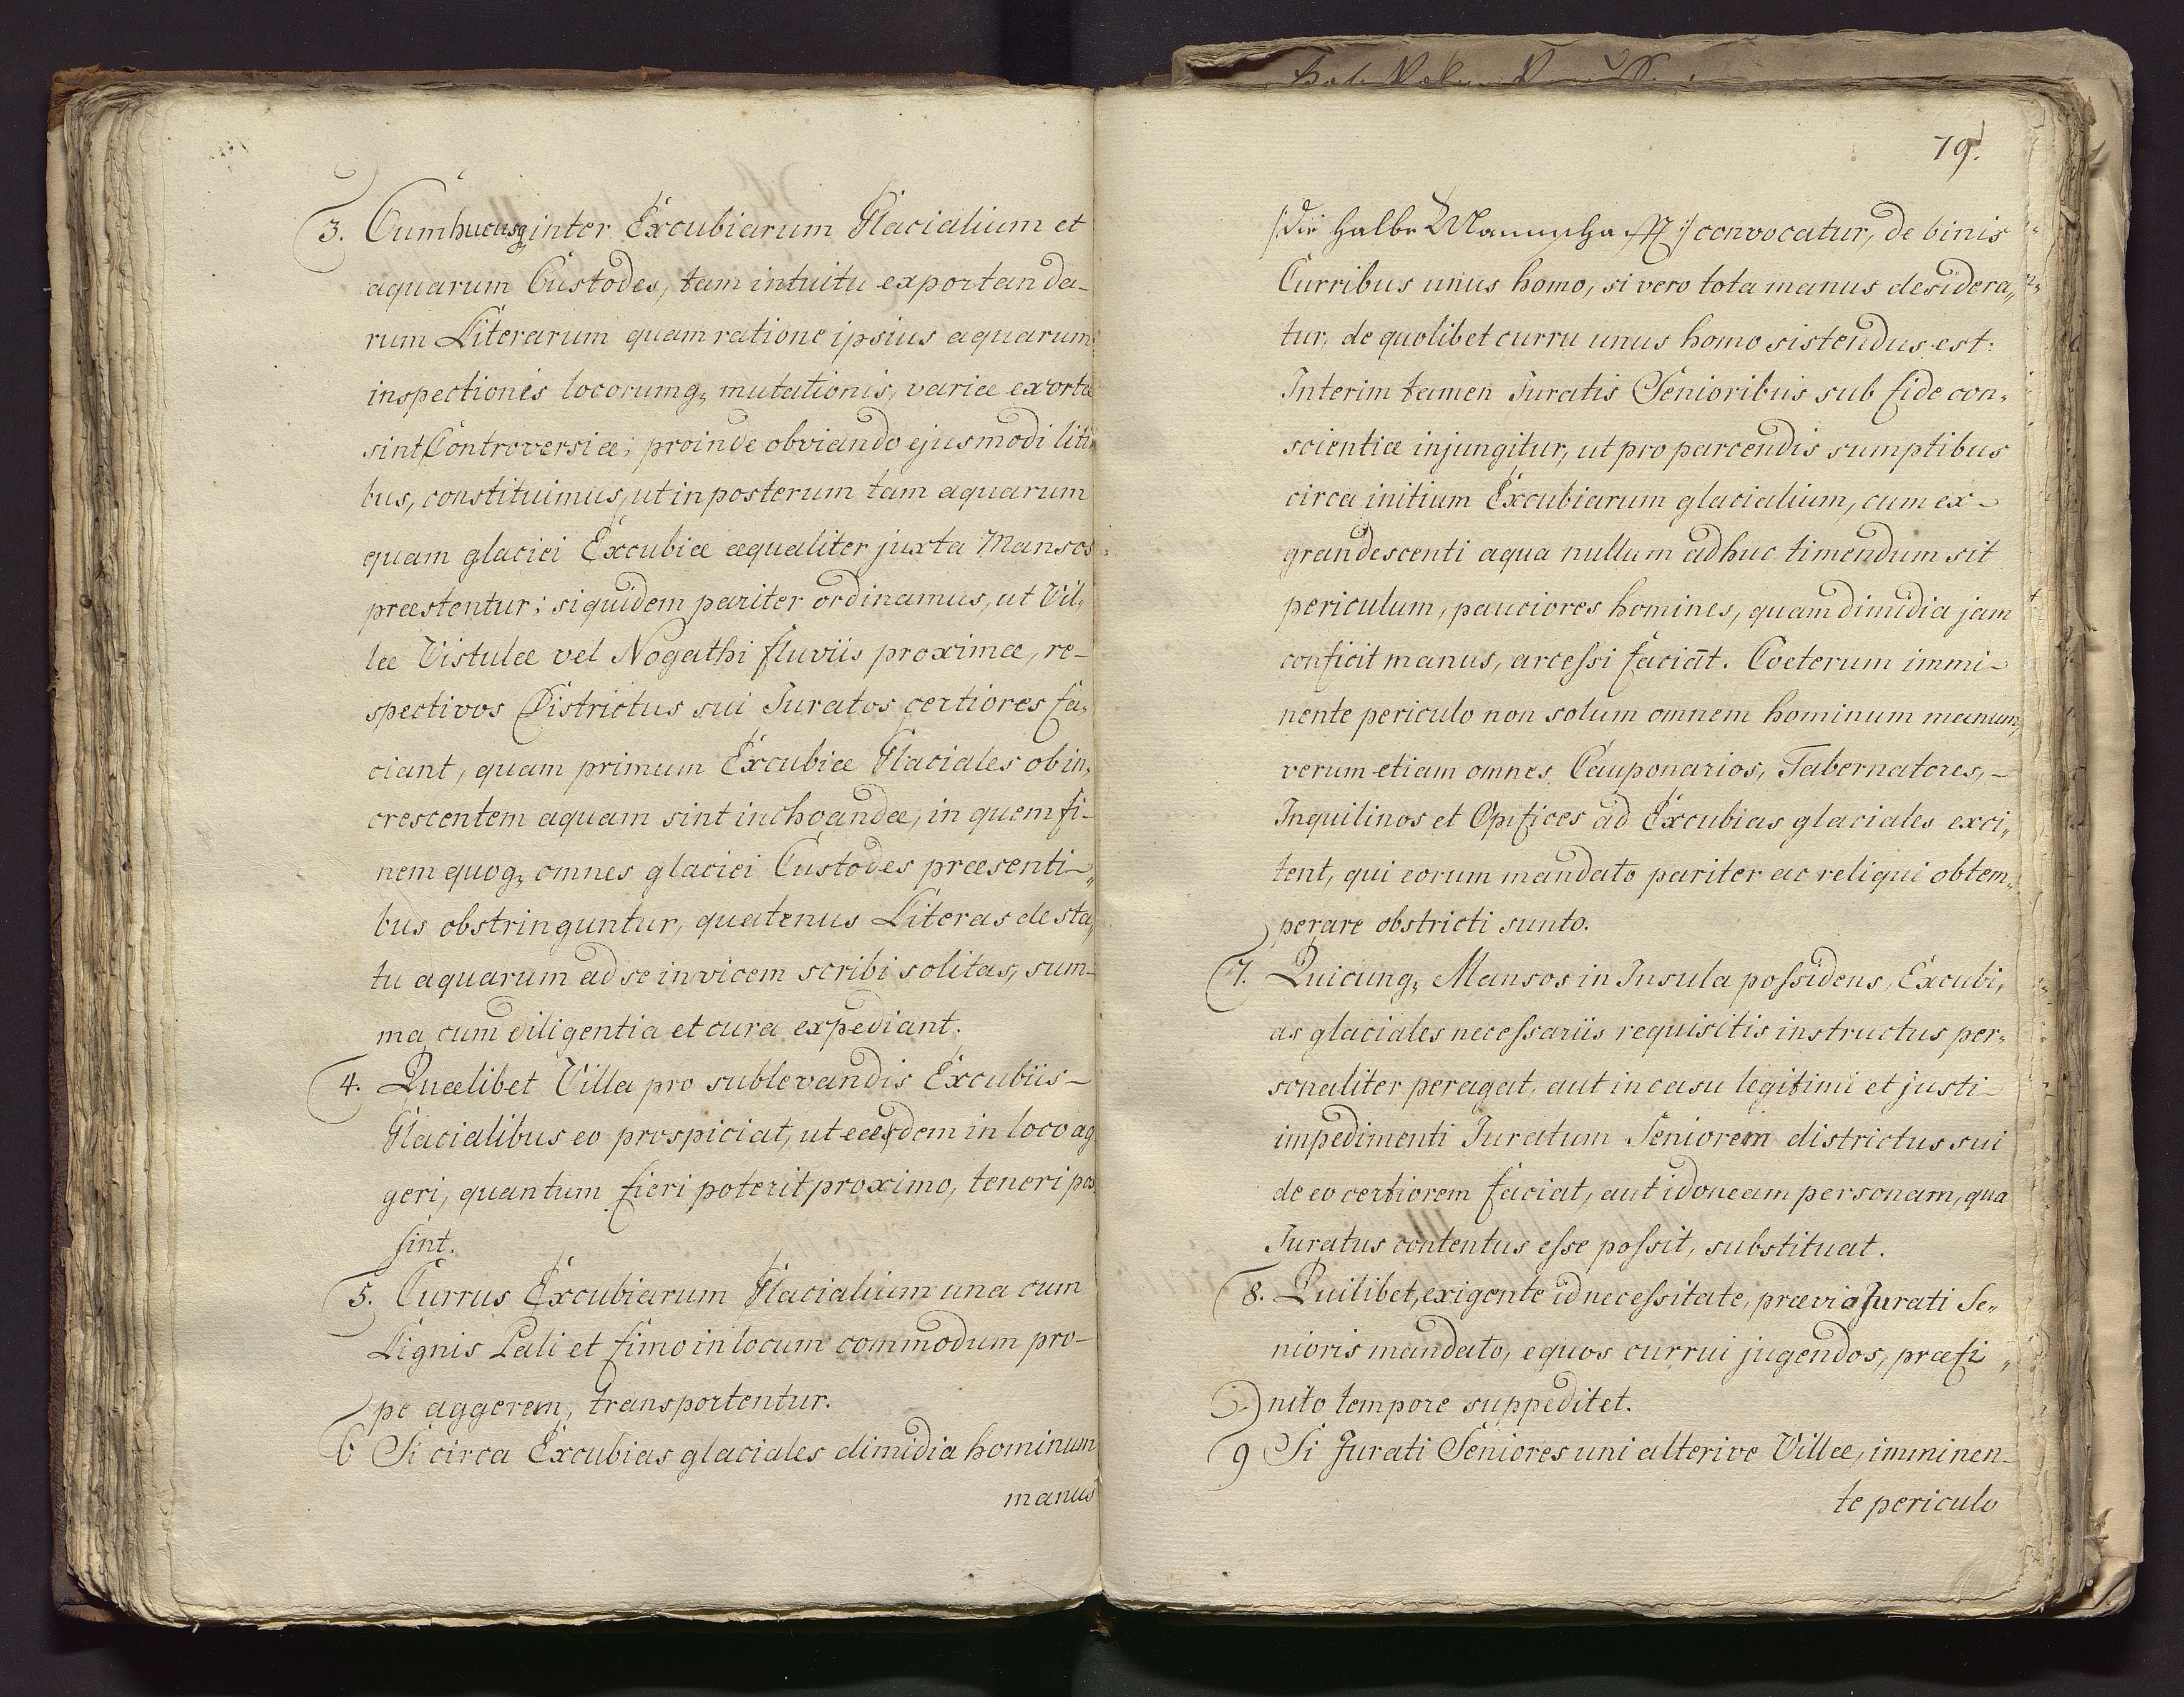 3. Cum hucusq; inter Excubiarum Glacialium et
aquarum Custodes, tam intuitu exportanda-
rum Literarum quam ratione ipsius aquarum
inspectionis locorumq; mutationis, variæ exortæ
sint Controversiæ; proinde obviando ejusmodi liti
bus, constituimus, ut in posterum tam aquarum
quam glaciei Excubiæ æqualiter juxta Mansos
præstentur; siquidem pariter ordinamus, ut Vil„
læ Vistulæ vel Nogathi fluviis proximæ, re-
spectivos Districtus sui Juratos certiores fa„
ciant, quam primum Excubiæ Glaciales ob in„
crescentem aquam sint inchoandæ, in quem fi-
nem quoq; omnes glaciei Custodes præsenti-„
bus obstringuntur, quatenus Literas de sta„
tu aquarum ad se invicem scribi solitas, sum-
ma cum diligentia et cura expediant.
4. Quælibet Villa pro sublevandis Excubiis-
Glacialibus eo prospiciat, ut eædem in loco ag
geri, quantum fieri poterit proximo, teneri pos
sint.
5. Currus Excubiarum Glacialium una cum
Lignis Pali et fimo in locum commodum pro-
pe aggerem, transportentur.
6 Si circa Excubias glaciales dimidia hominum
manus
79.
/: Die halbe Mannschafft :/ convocatur, de binis
Curribus unus homo, si vero tota manus desidera„
tur, de quolibet curru unus homo sistendus est.
Interim tamen Juratis Senioribus sub fide con„
scientiæ injungitur, ut pro parcendis sumptibus
circa initium Excubiarum glacialium, cum ex-
grandescenti aqua nullum adhuc timendum sit
periculum, pauciores homines, quam dimidia jam
conficit manus, arcessi faciāt. Cæterum immi-
nente periculo non solum omnem hominum manum,
verum etiam omnes Cauponarios, Tabernatores,-
Inquilinos et Opifices ad Excubias glaciales exci„
tent, qui eorum mandato pariter ac reliqui obtem„
perare obstricti sunto.
7. Quicunq; Mansos in Insula possidens, Excubi„
as glaciales necessariis requisitis instructus per„
sonaliter peragat, aut in casu legitimi et justi-
impedimenti Juratum Seniorem districtus sui
de eo certiorem faciat, aut idoneam personam, qua
Juratus contentus esse possit, substituat.
8. Quilibet, exigente id necessitate, prævio Jurati Se„
nioris mandato, equos currui jugendos, præfi„
nito tempore suppeditet.
9 Si Jurati Seniores uni alterive Villæ, imminen-
te periculo